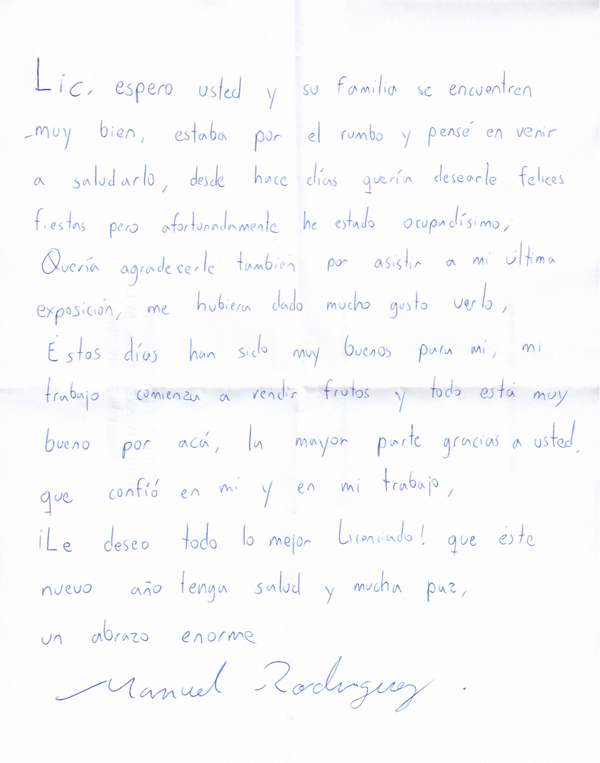 Lic, espero usted y su familia se encuentren
muy bien, estaba por el rumbo y pensé en venir
a saludarlo, desde hace días quería desearle felices
fiestas pero afortunadamente he estado ocupadísimo,
Quería agradeserle también por asistir a mi última
exposición, me hubiera dado mucho gusto verlo,
Estos días han sido muy buenos para mi, mi
trabajo comienza a rendir frutos y todo está muy
bueno por acá, la mayor parte gracias a usted,
que confió en mi y en mi trabajo,
¡Le deseo todo lo mejor Licenciado! que éste
nuevo año tenga salud y mucha paz,
un abrazo enorme
Manuel Rodriguez.